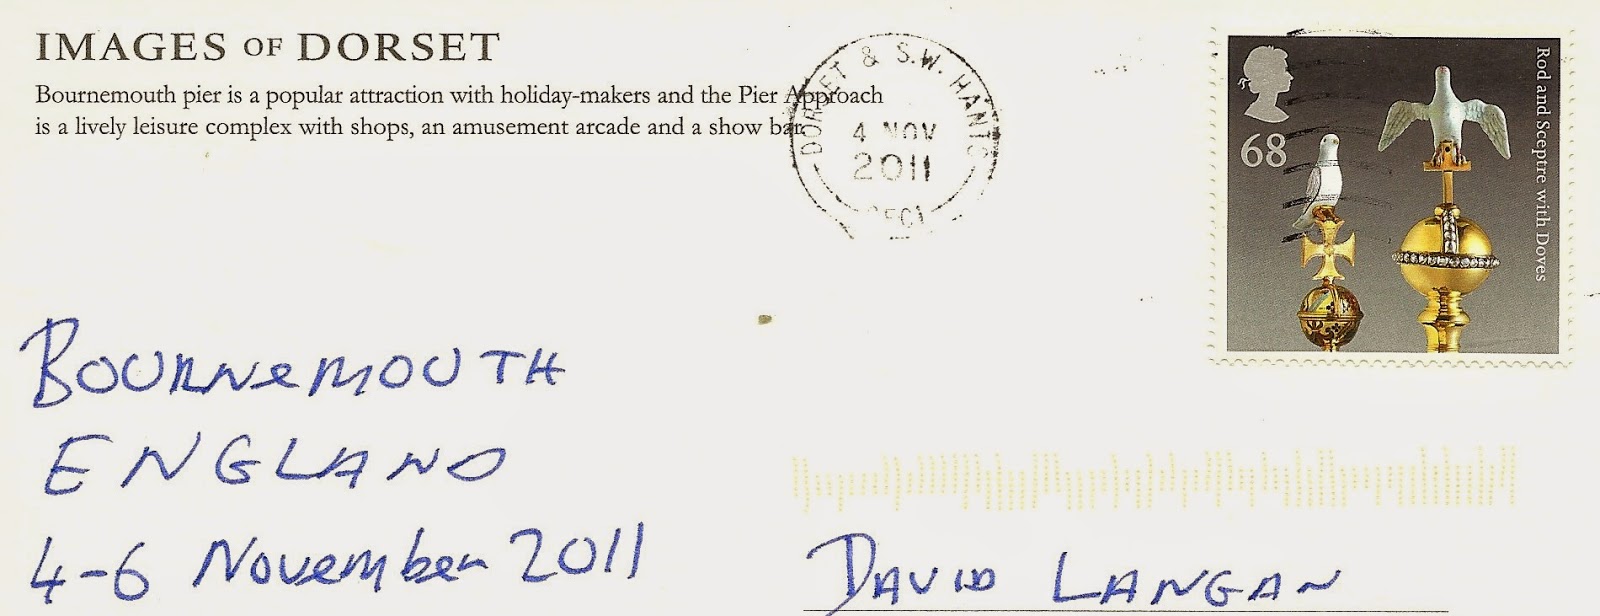 IMAGES OF DORSET
Bournemouth pier is a popular attraction with holiday-makers and the Pier Approach
is a lively leisure complex with shops, an amusement arcade and a show bar.
DORSET & S.W. HANTS
4 NOV
2011
68
Rod and Sceptre with Doves
BOURNeMOUTH
ENGLAND
4-6 November 2011
DAVID LANGAN